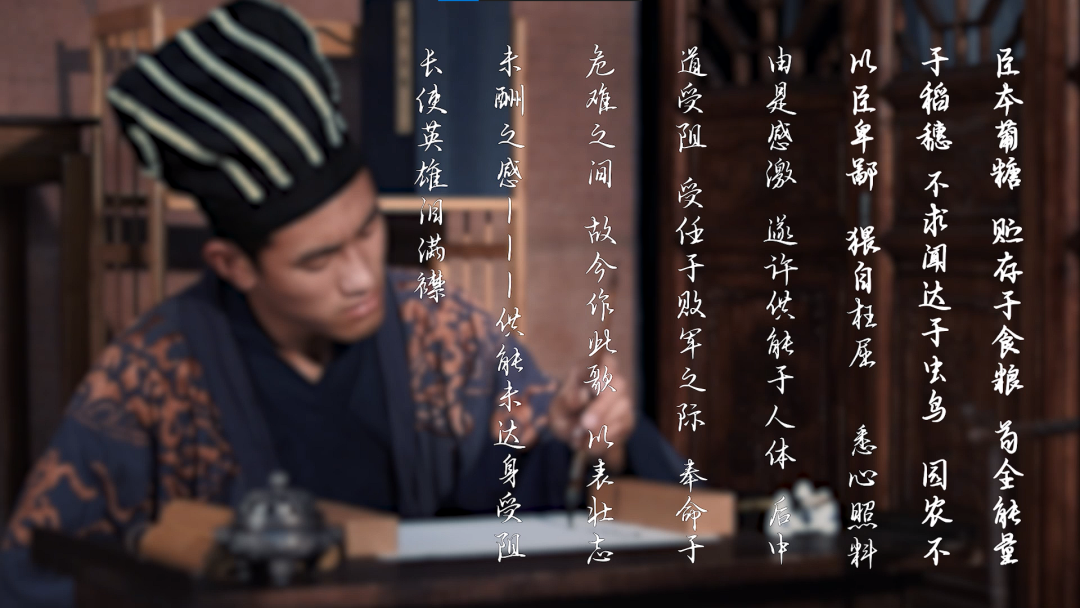 臣本葡糖 贮存于食粮 苟全能量
于稻穗 不求闻达于虫鸟 因农不
以臣卑鄙 猥自枉屈 悉心照料
由是感激 遂许供能于人体 后中
道受阻 受任于败军之际 奉命于
危难之间 故今作此歌 以表壮志
未酬之感———供能未达身受阻
长使英雄泪满襟